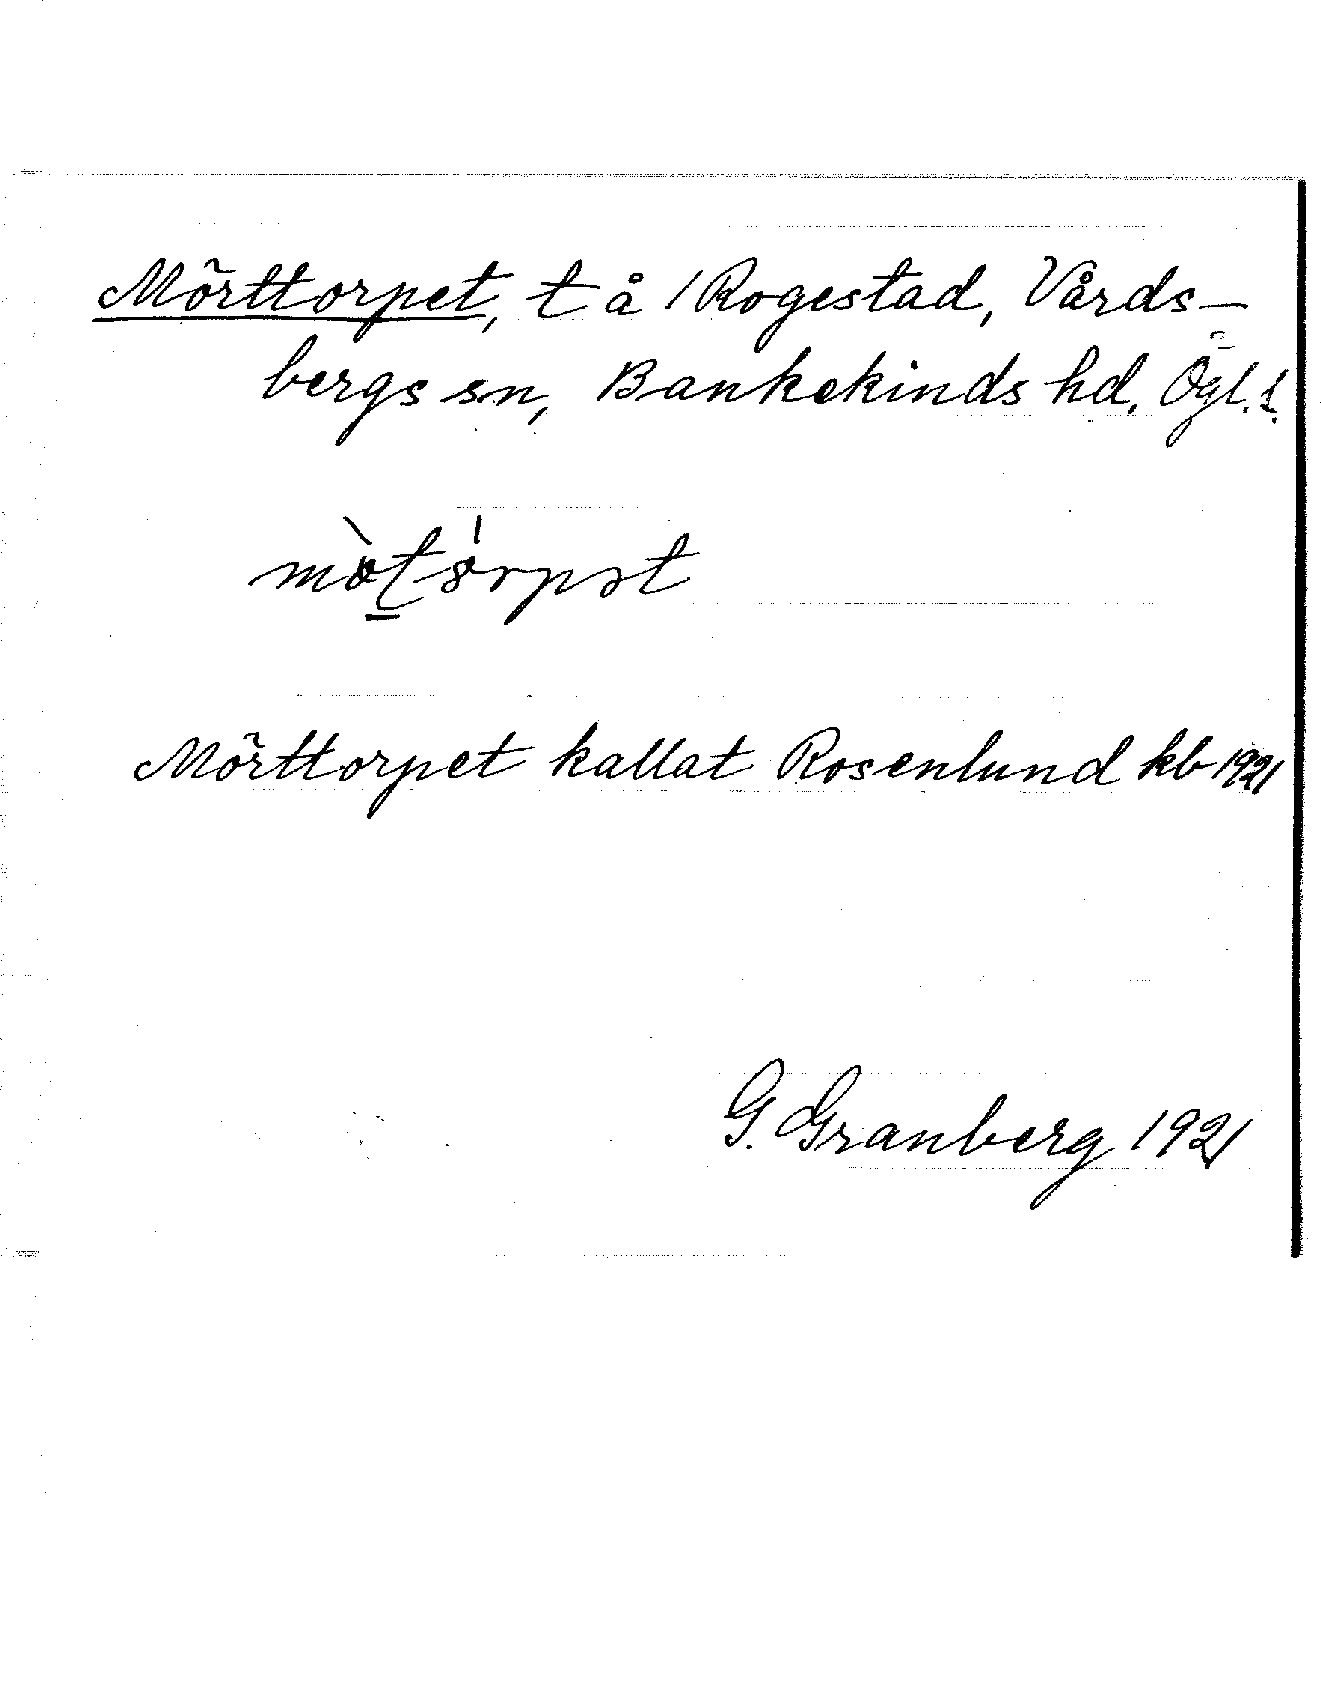 Mörttorpet, t å 1 Rogestad, Vårds-
bergs sn, Bankekinds hd, Ögl. l.
Mörttorpet kallat Rosenlund kb 1921
G. Granberg 1921